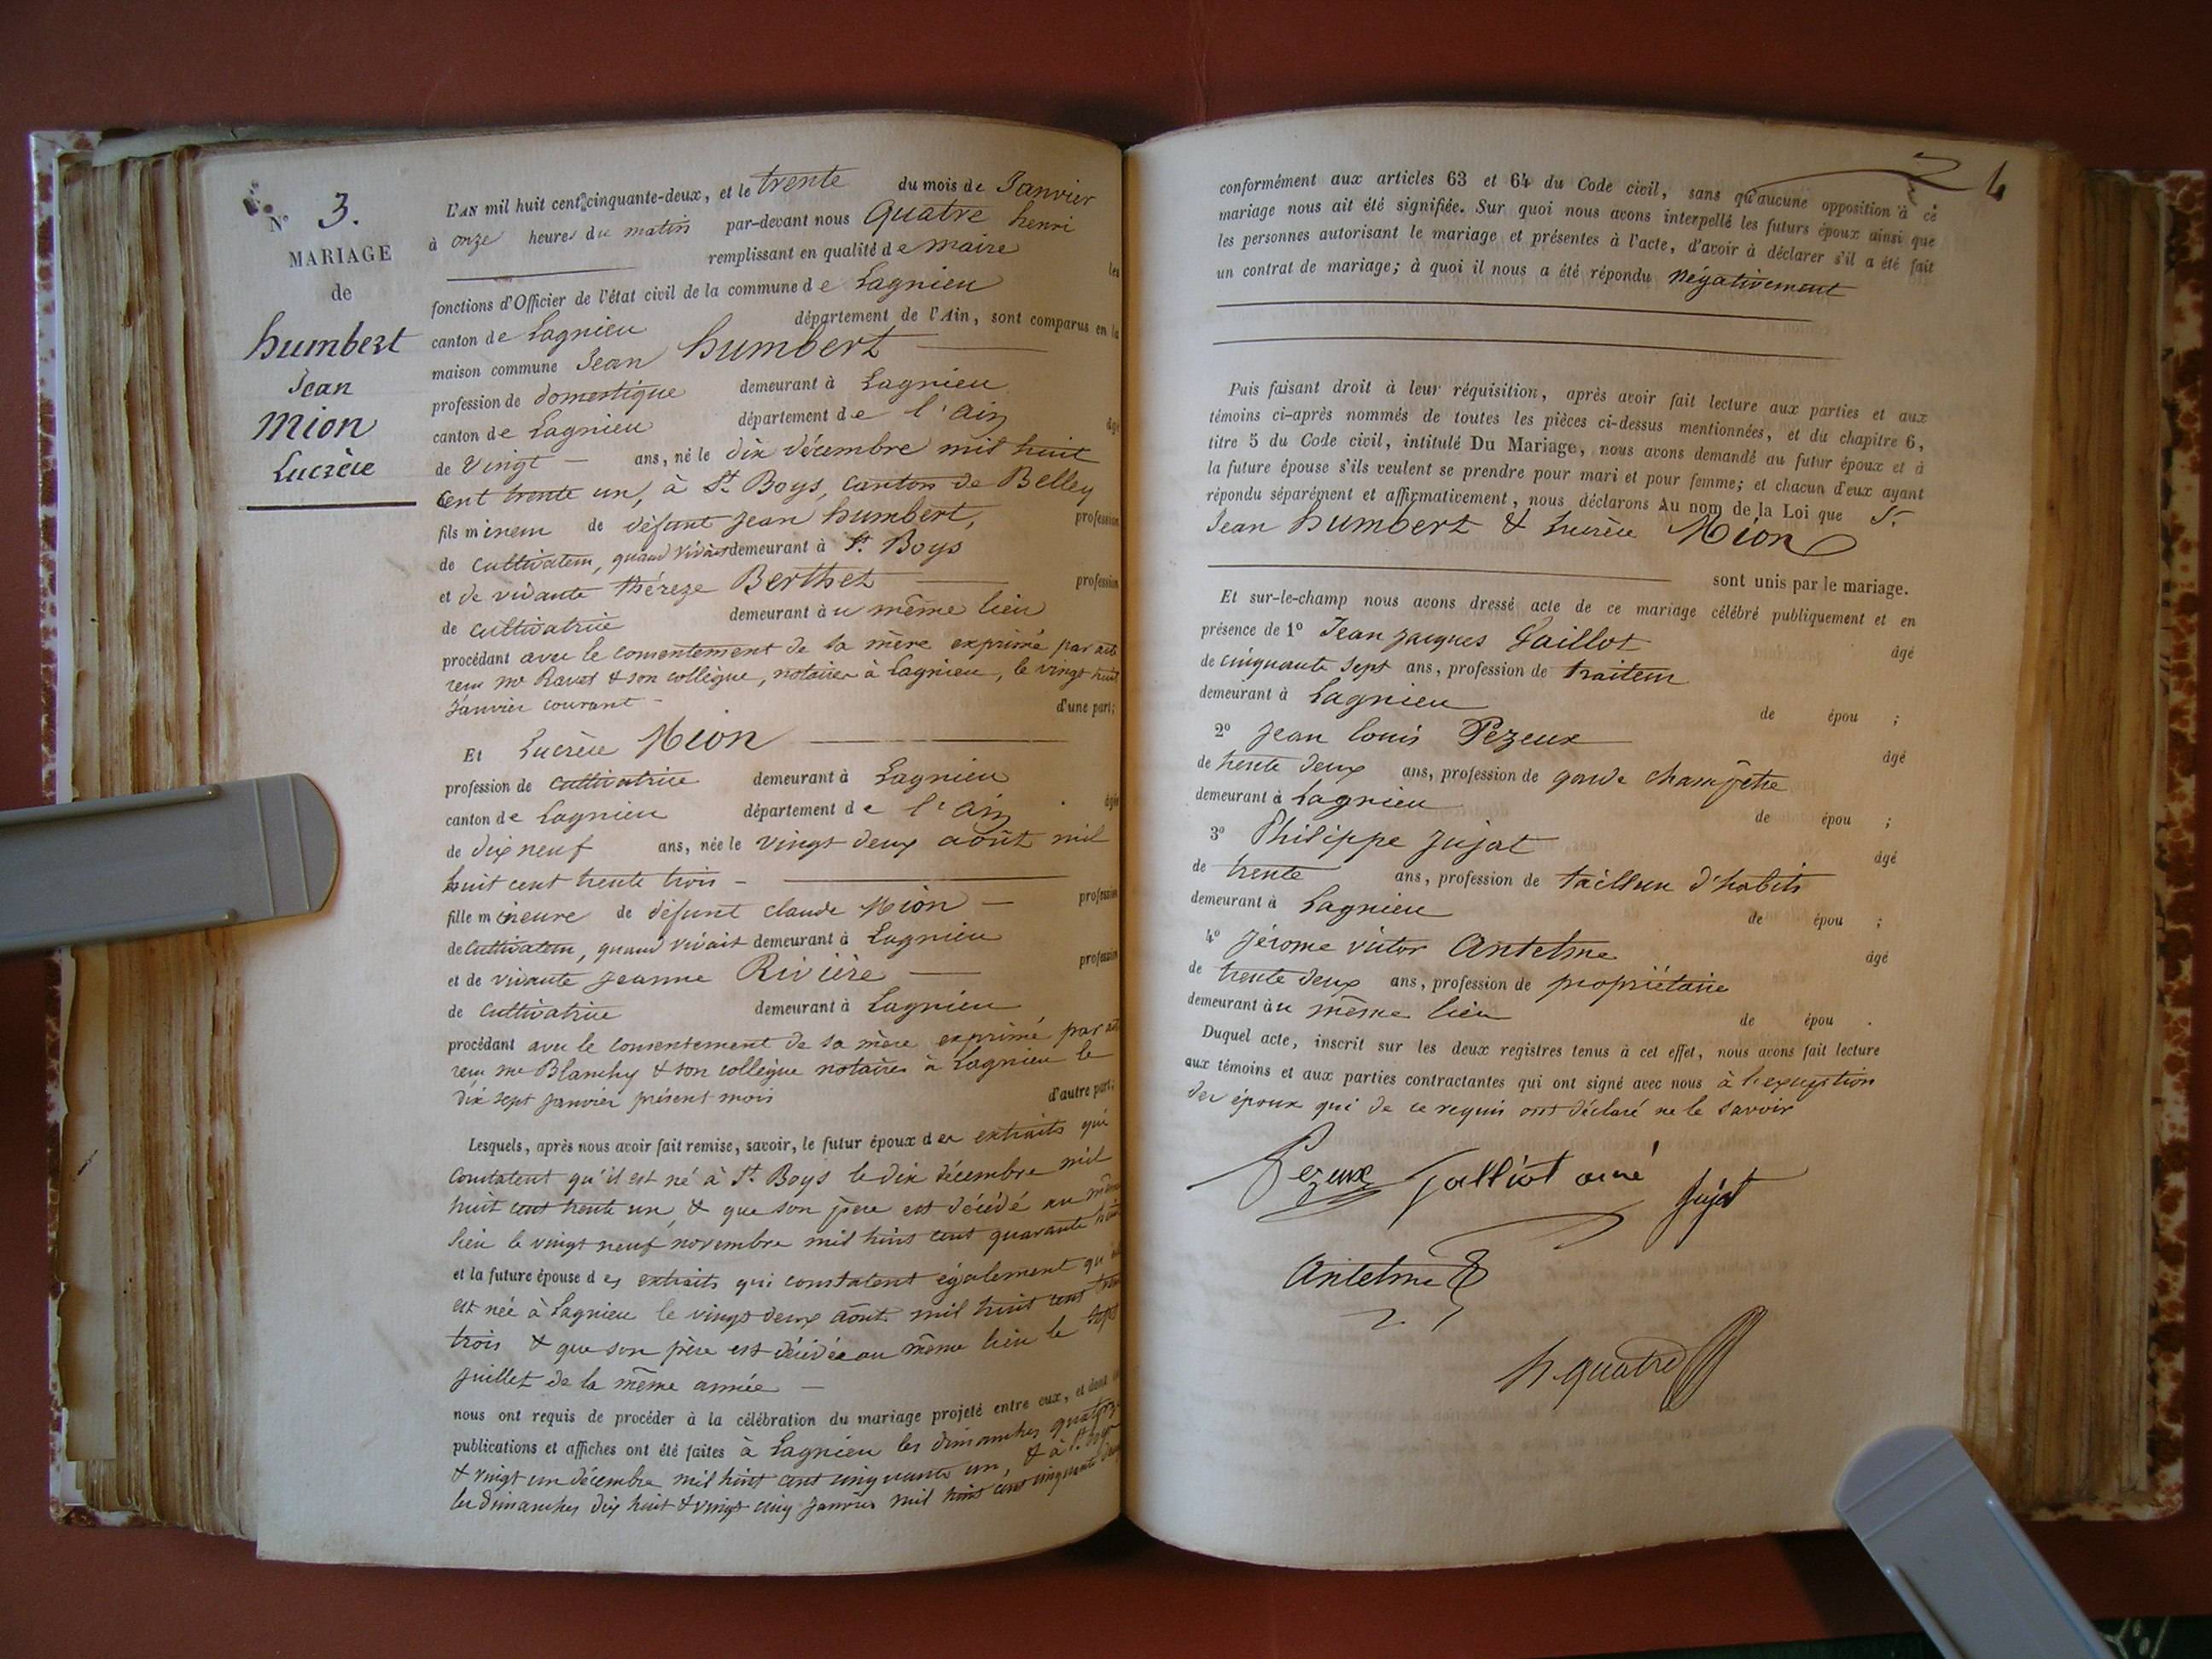 N° 3.
MARIAGE
de
humbert
Jean
Mion
Lucrèce
L'AN mil huit cent cinquante-deux, et le trente du mois de Janvier
à onze heures du matin par-devant nous Quatre henri
remplissant en qualité de maire les
fonctions d'Officier de l'état civil de la commune de Lagnieu
canton de Lagnieu département de l'Ain, sont comparus en la
maison commune Jean humbert
profession de domestique demeurant à Lagnieu
canton de Lagnieu département de l'ain âgé
de vingt ans, né le dix décembre mil huit
cent trente un, à St. Boys, canton de Belley
fils mineur de défunt Jean humbert, profession
de cultivateur, quand vivait demeurant à St. Boys
et de vivante thérèze Berthet profession
de cultivatrice demeurant au même lieu
procédant avec le consentement de sa mère exprimé par acte
reçu me Ravet & son collègue, notaires à Lagnieu, le vingt huit
Janvier courant d'une part;
Et Lucrèce Mion
profession de cultivatrice demeurant à Lagnieu
canton de Lagnieu département de l'ain âgée
de dix neuf ans, née le vingt deux août mil
huit cent trente trois
fille mineure de défunt claude Mion profession
de cultivateur, quand vivait demeurant à Lagnieu
et de vivante Jeanne Rivière profession
de cultivatrice demeurant à Lagnieu
procédant avec le consentement de sa mère exprimé par acte
reçu me Blanchy & son collègue notaires à Lagnieu le
dix sept Janvier présent mois d'autre part;
Lesquels, après nous avoir fait remise, savoir, le futur époux des extraits qui
constatent qu'il est né à St. Boys le dix décembre mil
huit cent trente un, & que son père est décédé au même
lieu le vingt neuf novembre mil huit cent quarante huit
et la future épouse des extraits qui constatent également qu'elle
est née à Lagnieu le vingt deux août mil huit cent trente
trois & que son père est décédé au même lieu le sept
juillet de la même année
nous ont requis de procéder à la célébration du mariage projeté entre eux, et dont les
publications et affiches ont été faites à Lagnieu les dimanches quatorze
& vingt un décembre mil huit cent cinquante un, & à St. Boys
les dimanches dix huit & vingt cinq janvier mil huit cent cinquante deux
4
conformément aux articles 63 et 64 du Code civil, sans qu'aucune opposition à ce
mariage nous ait été signifiée. Sur quoi nous avons interpellé les futurs époux ainsi que
les personnes autorisant le mariage et présentes à l'acte, d'avoir à déclarer s'il a été fait
un contrat de mariage; à quoi il nous a été répondu négativement
Puis faisant droit à leur réquisition, après avoir fait lecture aux parties et aux
témoins ci-après nommés de toutes les pièces ci-dessus mentionnées, et du chapitre 6,
titre 5 du Code civil, intitulé Du Mariage, nous avons demandé au futur époux et à
la future épouse s'ils veulent se prendre pour mari et pour femme; et chacun d'eux ayant
répondu séparément et affirmativement, nous déclarons Au nom de la Loi que S.
Jean humbert & Lucrèce Mion
sont unis par le mariage.
Et sur-le-champ nous avons dressé acte de ce mariage célébré publiquement et en
présence de 1° Jean Jacques Gaillot âgé
de cinquante sept ans, profession de traiteur
demeurant à Lagnieu de épou ;
2° Jean Louis Pezeux âgé
de trente deux ans, profession de garde champêtre
demeurant à Lagnieu de épou ;
3° Philippe Jujat âgé
de trente ans, profession de tailleur d'habits
demeurant à Lagnieu de épou ;
4° Jérome victor Antelme âgé
de trente deux ans, profession de propriétaire
demeurant au même lieu de épou .
Duquel acte, inscrit sur les deux registres tenus à cet effet, nous avons fait lecture
aux témoins et aux parties contractantes qui ont signé avec nous à l'exception
des époux qui de ce requis ont déclaré ne le savoir
Pezeux Galliot ainé
Jujat
Antelme
h. quatre